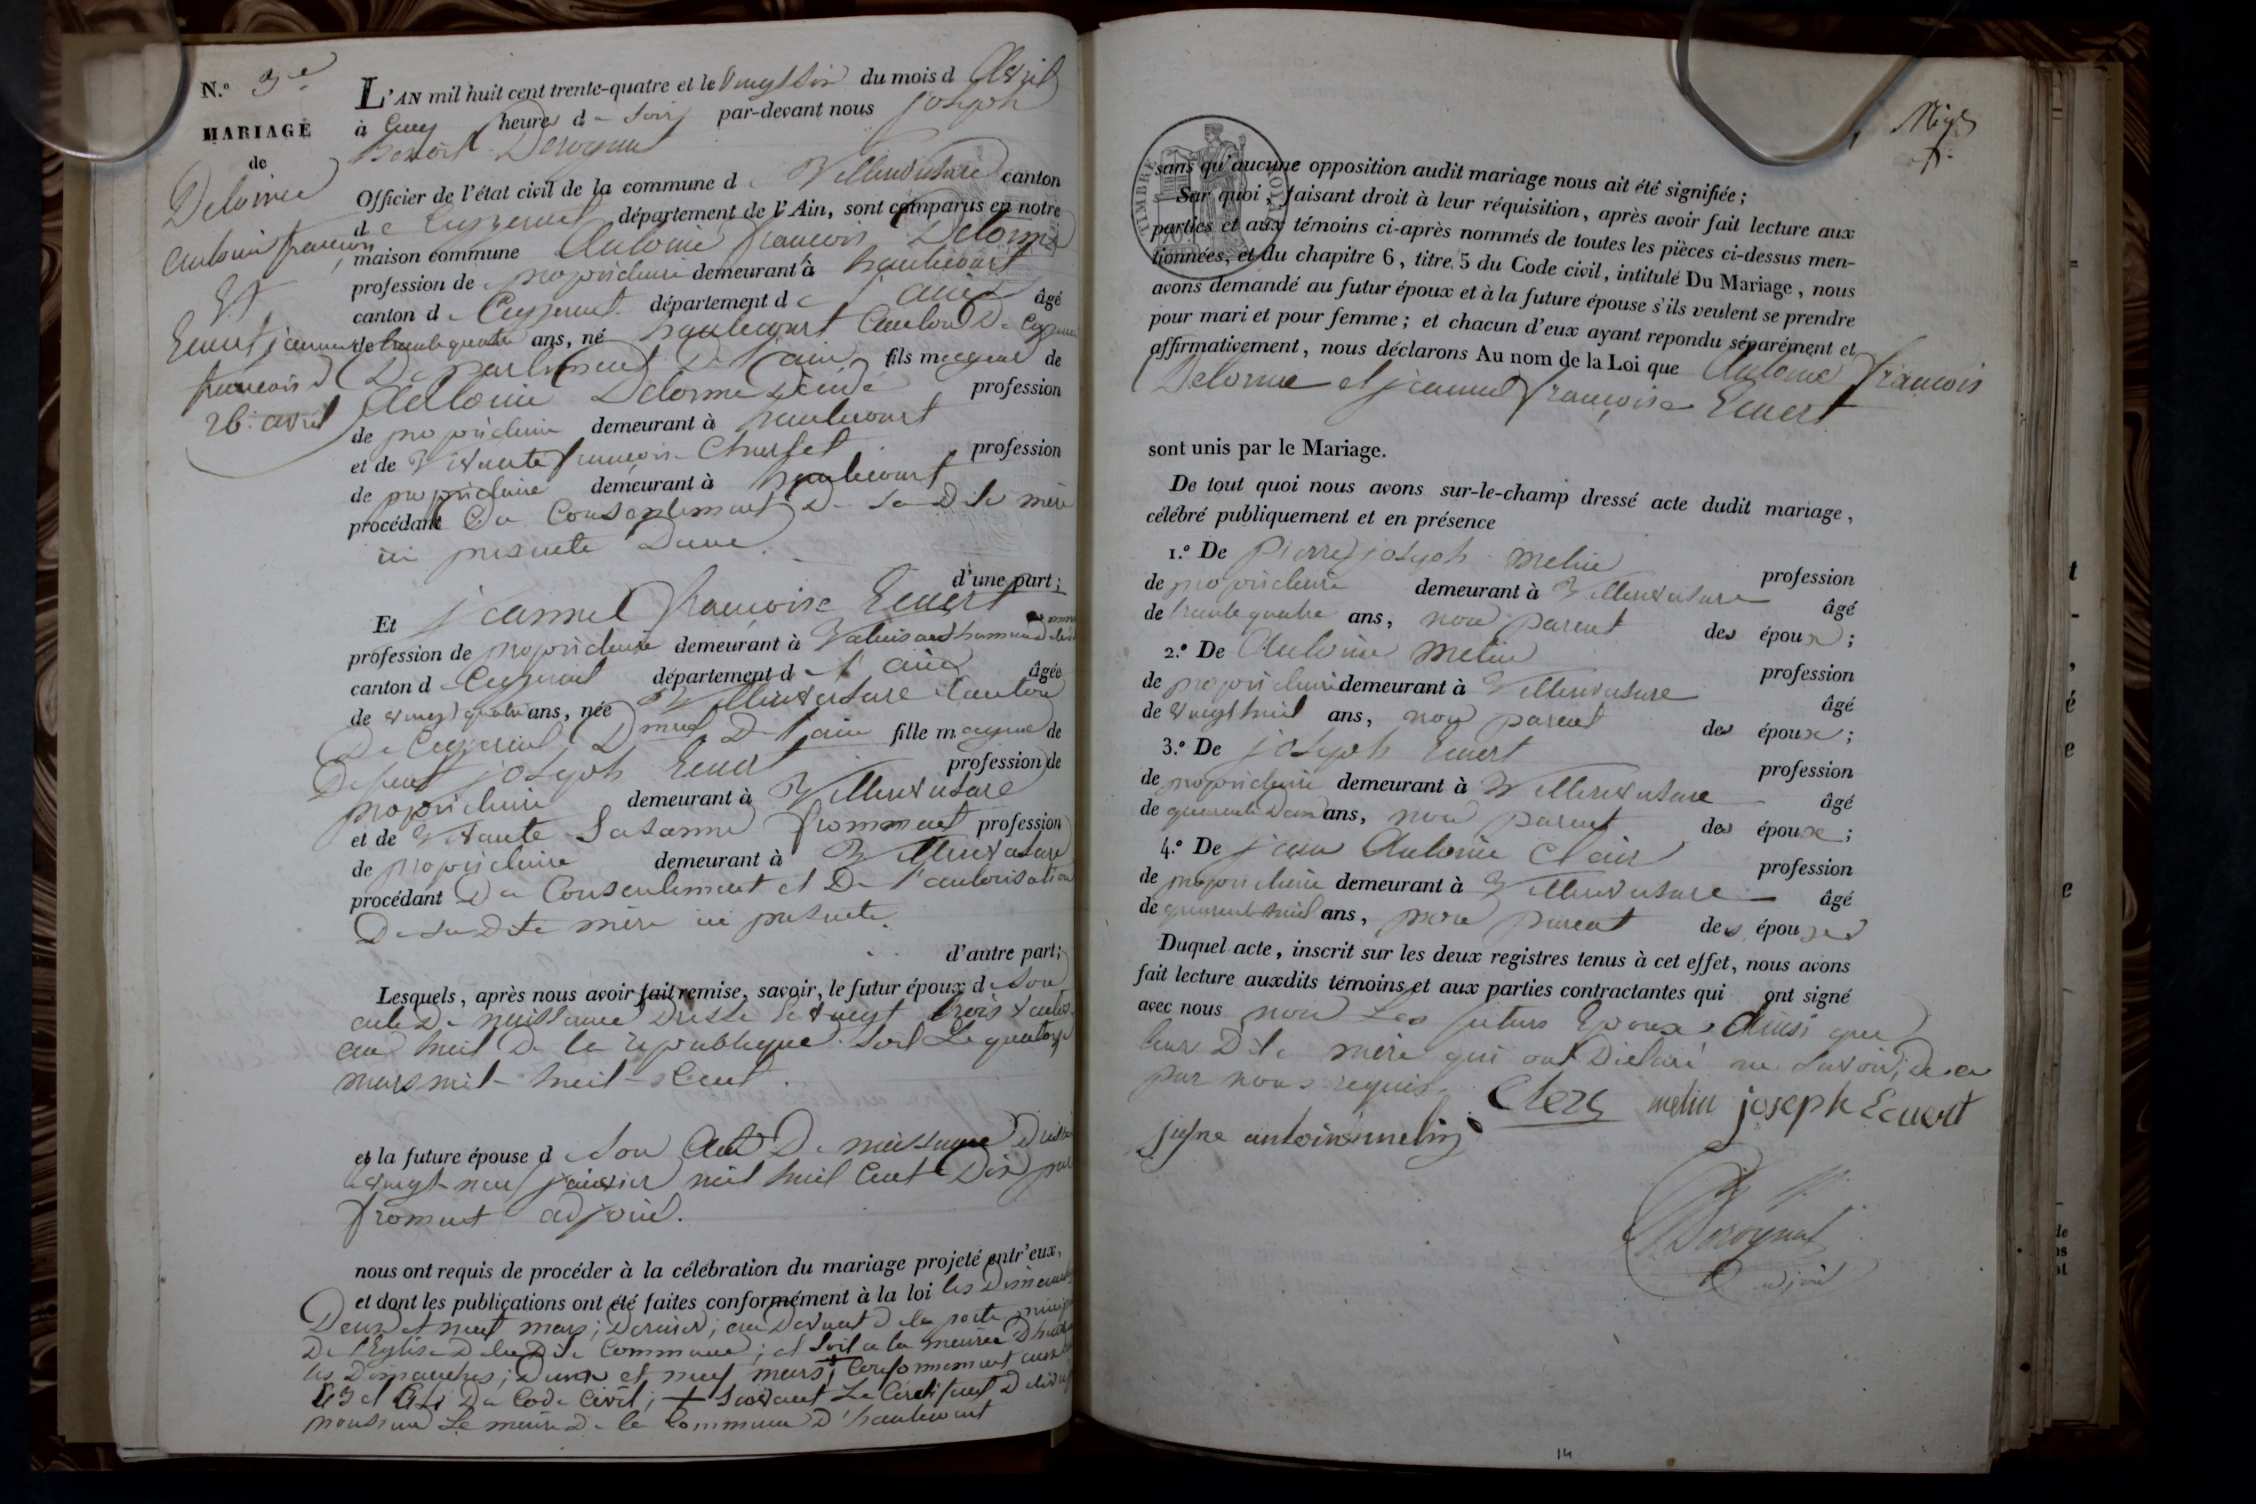 N.o 9e
MARIAGE
de
Delorme
antoine françois
Et
Ecuert jeanne
françoise
26 avril
L'AN mil huit cent trente-quatre et le vingt six du mois d avril
à cinq heures du soir par-devant nous joseph
benoit Derognat
Officier de l'état civil de la commune de Villereversure canton
de Ceyzeriat département de l'Ain, sont comparus en notre
maison commune Antoine françois Delorme
profession de propriétaire demeurant à hautecourt
canton de Ceyzeriat département de l'ain âgé
de trente quatre ans, né hautecourt Canton De Ceyzeriat
Département De l'ain fils majeur de
Antoine Delorme Décédé profession
de propriétaire demeurant à hautecourt
et de Vivante françoise Churlet profession
de propriétaire demeurant à hautecourt
procédant Du Consentement De sa Dite mère
ici presente D'une
d'une part;
Et jeanne françoise Ecuert
profession de propriétaire demeurant à
canton de Ceyzeriat département de l'ain âgée
de vingt quatre ans, née Villereversure Canton
De Ceyzeriat Dment De l'ain fille majeure de
Defunt joseph Ecuert profession de
propriétaire demeurant à Villereversure
et de Vivante Susanne fromment profession
de propriétaire demeurant à Villereversure
procédant Du Consentement et De l'autorisation
De sa Dite mère ici presente
d'autre part;
Lesquels, après nous avoir fait remise, savoir, le futur époux de Son
acte De naissance Dressé le vingt trois
an huit De la république soit Le quatorze
mars mil huit Cent.
et la future épouse de son acte De naissance Dressé
le vingt neuf janvier mil huit Cent Dix par
froment adjoint.
nous ont requis de procéder à la célébration du mariage projeté entr'eux,
et dont les publications ont été faites conformément à la loi les Dimanches
Deux et neuf mars; Dernier; au Devant De la porte
De l'Eglise De la Dite Commune; et soit a la mairie
les Dimanches; Deux et neuf mars; Conformement aux
63 et 64 Du Code Civil; + suivant Le Certificat Delivré
monsieur Le maire De la Commune D'hautecourt
sans qu'aucune opposition audit mariage nous ait été signifiée;
Sur quoi, faisant droit à leur réquisition, après avoir fait lecture aux
parties et aux témoins ci-après nommés de toutes les pièces ci-dessus men-
tionnées, et du chapitre 6, titre 5 du Code civil, intitulé Du Mariage, nous
avons demandé au futur époux et à la future épouse s'ils veulent se prendre
pour mari et pour femme; et chacun d'eux ayant repondu séparément et
affirmativement, nous déclarons Au nom de la Loi que Antoine françois
Delorme et jeanne françoise Ecuert
sont unis par le Mariage.
De tout quoi nous avons sur-le-champ dressé acte dudit mariage,
célébré publiquement et en présence
1.o De Pierre joseph Melin profession
de propriétaire demeurant à Villereversure âgé
de trente quatre ans, non parent des époux;
2.o De Antoine Melin profession
de propriétaire demeurant à Villereversure âgé
de vingt huit ans, non parent des époux;
3.o De joseph Ecuert profession
de propriétaire demeurant à Villereversure âgé
de quarente Deux ans, non parent des époux;
4.o De jean Antoine Clair profession
de propriétaire demeurant à Villereversure âgé
de quarente huit ans, non parent des époux
Duquel acte, inscrit sur les deux registres tenus à cet effet, nous avons
fait lecture auxdits témoins et aux parties contractantes qui ont signé
avec nous non Les futurs Epoux Ainsi que
leur Dite mère qui ont Déclaré ne savoir, de ce
par nous requis
Clerc melin joseph Ecuert
signe antoine melin
Derognat
adjoint
14